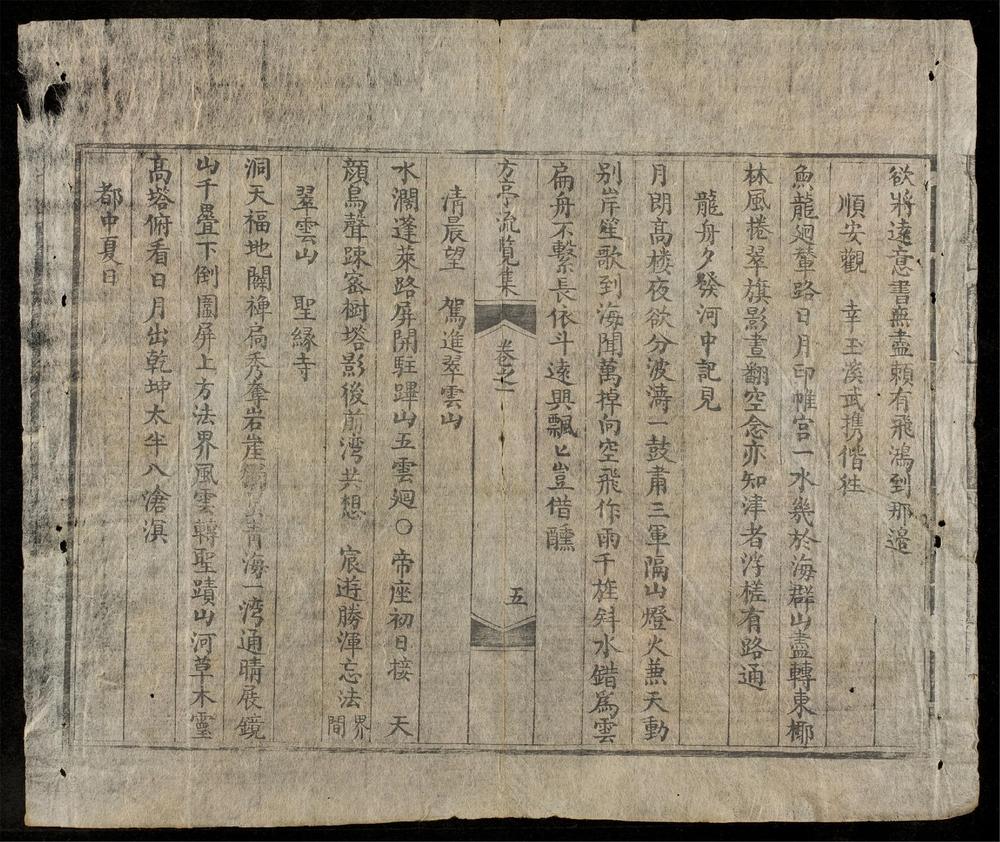 欲將遠意書無盡頼有飛鴻到那邉
順安觀　幸玉溪武携偕徃
魚龍廻輦路日月印帷宫一水幾於海群山盡轉東椰
林風捲翠旗影晝翻空念亦知津者浮槎有路通
龍舟夕發河中記見
月朗高楼夜欲分波濤一鼓肅三軍隔山燈火兼天動
别岸笙歌到海聞萬棹向空飛作雨千旌斜水錯爲雲
扁舟不繫長依斗遠興飄匕豈借醺
方亭流覧集　卷之一　五
清晨望　駕進翠雲山
水濶蓬萊路屏開駐蹕山五雲廻〇帝座初日接　天
顔鳥聲踈密樹塔影後前湾共想　宸遊勝渾忘法界間
翠雲山　聖縁寺
洞天福地闢禅扃秀奪岩崖青海一湾通晴展鏡
山千疊下倒圍屏上方法界風雲轉聖蹟山河草木靈
髙塔俯看日月出乾坤太半八滄溟
都中夏日